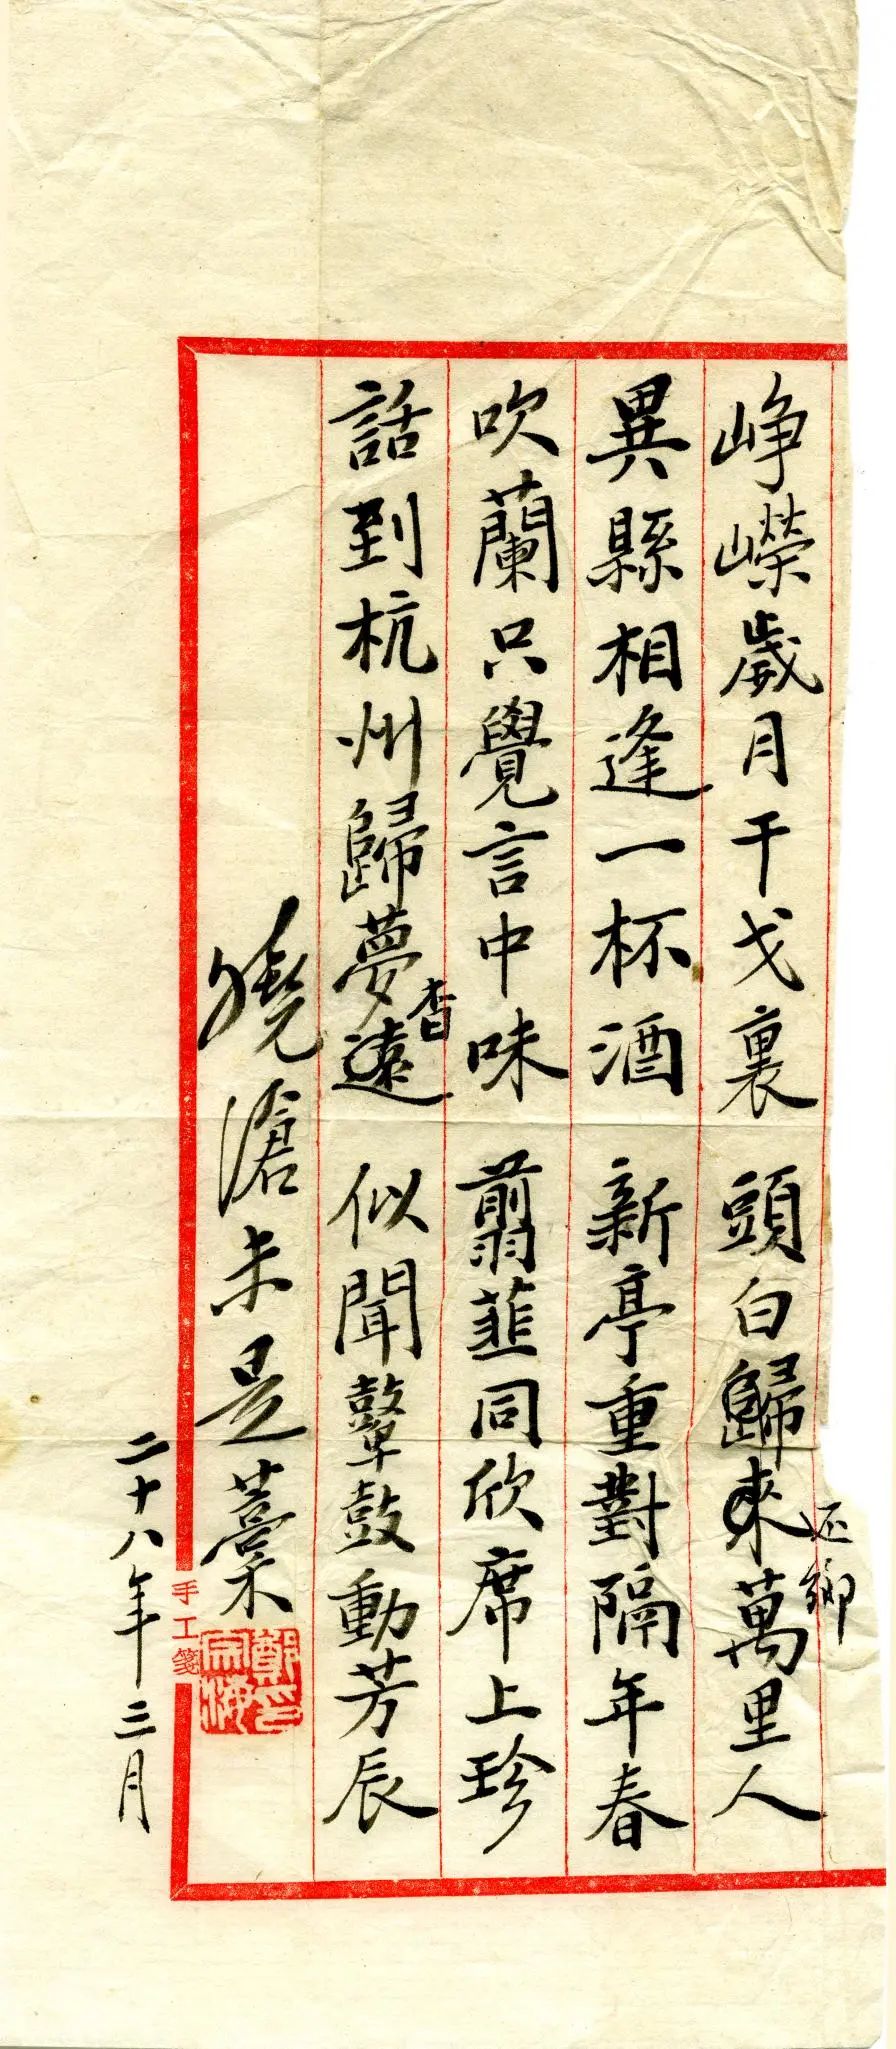 崢嶸歲月干戈裏 頭白歸來萬里人
还鄉
異縣相逢一杯酒 新亭重對隔年春
吹蘭只覺言中味 翦韮同欣席上珍
話到杭州歸夢遠 似聞鼙鼓動芳辰
杳
曉滄未是藳
鄭宗海印
手工箋
二十八年三月